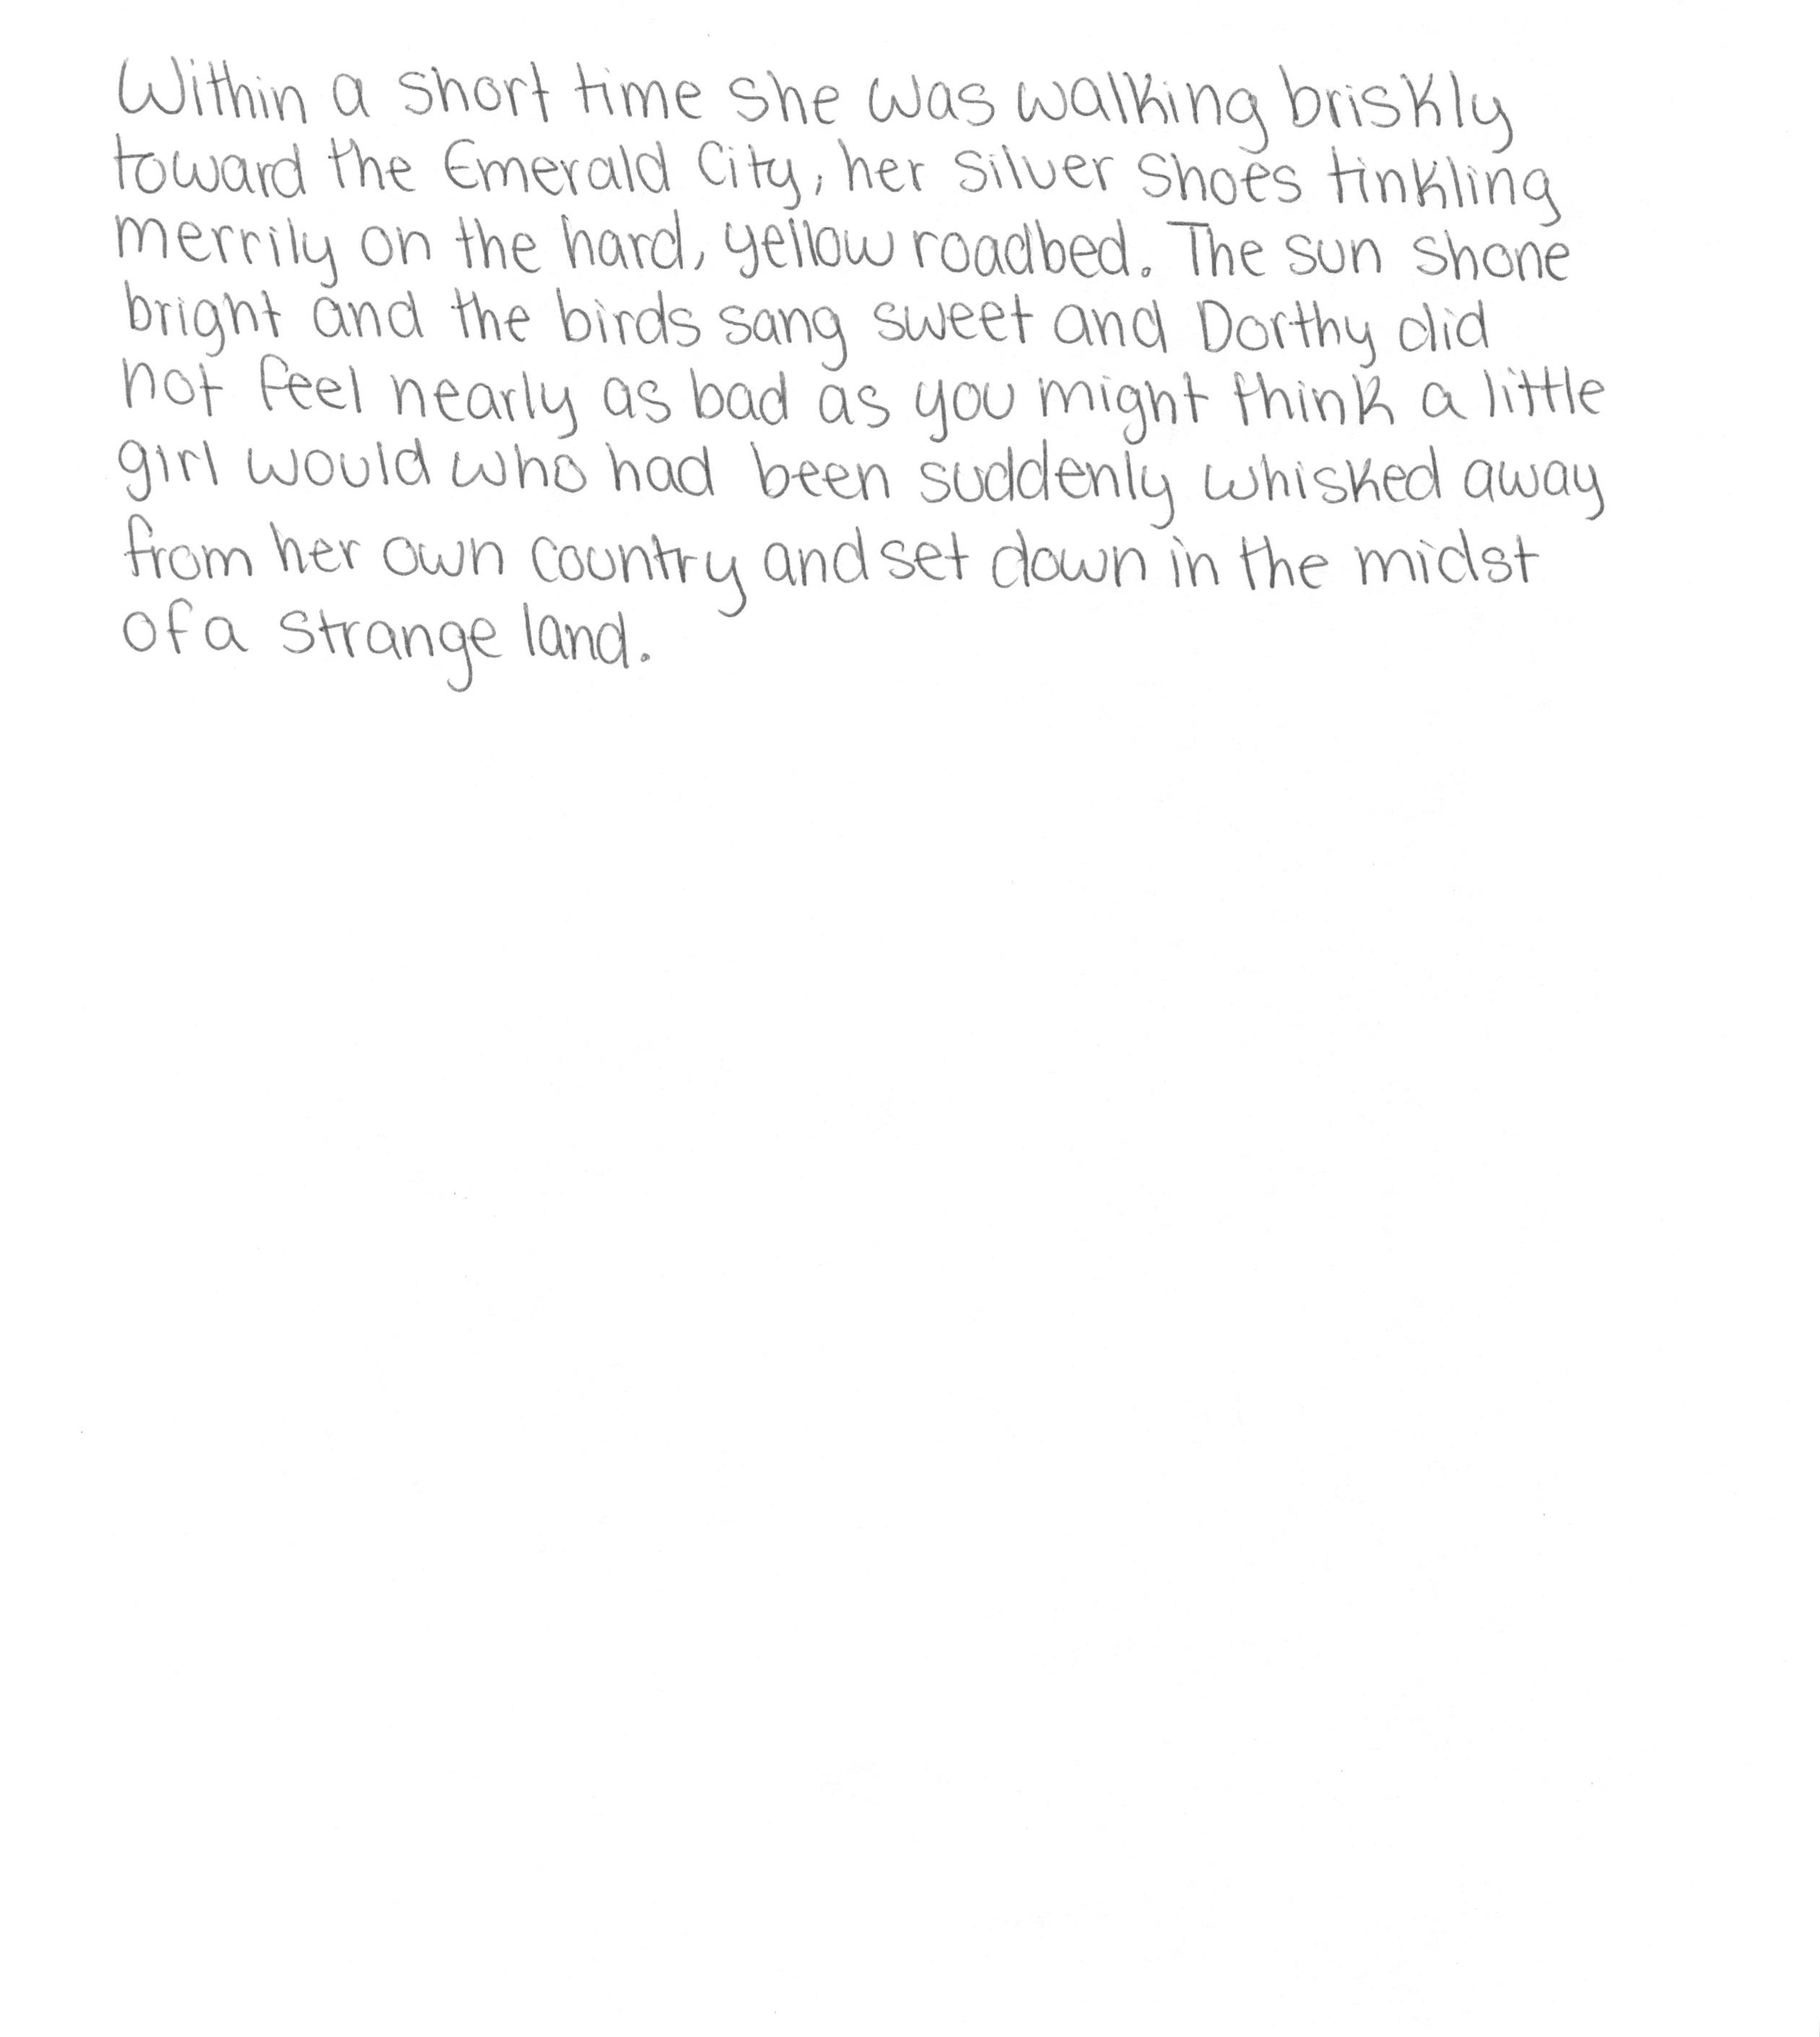 Within a short time she was walking briskly
toward the Emerald City, her silver shoes tinkling
merrily on the hard, yellow roadbed. The sun shone
bright and the birds sang sweet and Dorthy did
not feel nearly as bad as you might think a little
girl would who had been suddenly whisked away
from her own country and set down in the midst
of a strange land.